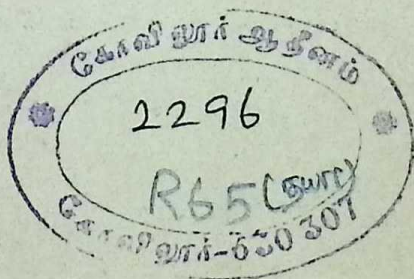 கோவிலூர் ஆதீனம்
2296
R65 (தயா)
கோவிலூர்-630307